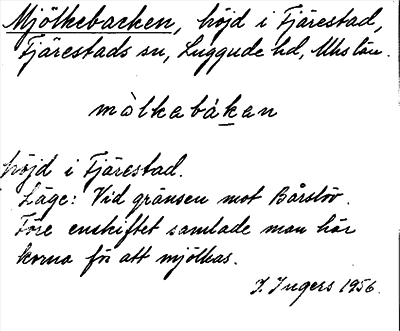 Mjölkebacken, höjd i Fjärestad,
Fjärestads sn, Luggude hd, Mhs län.
mòlkabákan
höjd i Fjärestad.
Läge: Vid gränsen mot Bårslöv.
Före enskiftet samlade man här
korna för att mjölkas.
I. Ingers 1956.